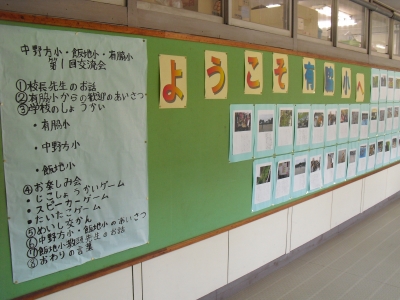 中野方小・飯地小・有脳小
第1回交流会
①校長先生のお話
②有脳小からの歓迎のあいさつ
③学校のしょうかい
・有脳小
・中野方小
・飯地小
④お楽しみ会
・じこしょうかいゲーム
・スピーカーゲーム
・たいたこゲーム
⑤めいし交かん
⑥中野方小・飯地小のあいさつ
⑦飯地小教頭先生のお話
⑧おわりの言葉
ようこそ有脳小へ